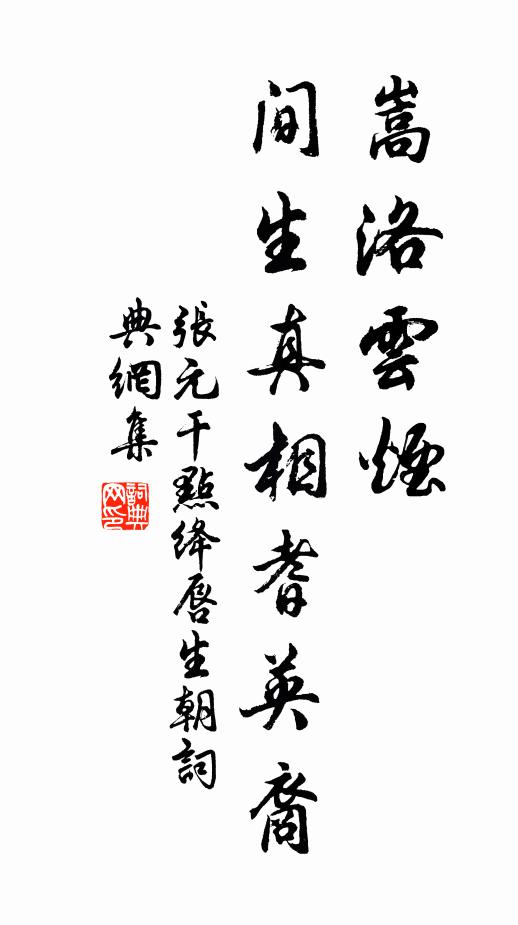 嵩洛雲煙
間生真相耆英裔
張元干點絳唇生朝詞
典網集
詞典網印